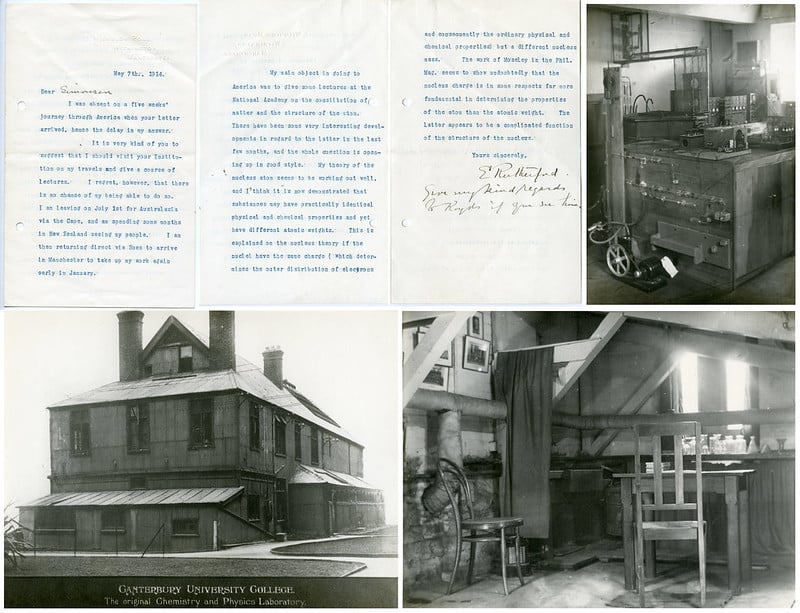 May 7thr, 1914.
Dear Simonsen
I was absent on a five weeks'
journey through America when your letter
arrived, hence the delay in my answer.
It is very kind of you to
suggest that I should visit your Institu-
tion on my travels and give a course of
lectures. I regret, however, that there
is no chance of my being able to do so.
I am leaving on July 1st for Australasia
via the Cape, and am spending some months
in New Zealand seeing my people. I am
then returning direct via Suez to arrive
in Manchester to take up my work again
early in January.
My main object in going to
America was to give some lectures at the
National Academy on the constitution of
matter and the structure of the atom.
There have been some very interesting devel-
opments in regard to the latter in the last
few months, and the whole question is open-
ing up in good style. My theory of the
nucleus atom seems to be working out well,
and I think it is now demonstrated that
substances may have practically identical
physical and chemical properties and yet
have different atomic weights. This is
explained on the nucleus theory if the
nuclei have the same charge ( which deter-
mines the outer distribution of electrons
and consequently the ordinary physical and
chemical properties) but a different nucleus
mass. The work of Moseley in the Phil.
Mag. seems to show undoubtedly that the
nucleus charge is in some respects far more
fundamental in determining the properties
of the atom than the atomic weight. The
latter appears to be a complicated function
of the structure of the nucleus.
Yours sincerely,
E Rutherford.
Give my kind regards
to Royds if you see him
CANTERBURY UNIVERSITY COLLEGE.
The original Chemistry and Physics Laboratory.